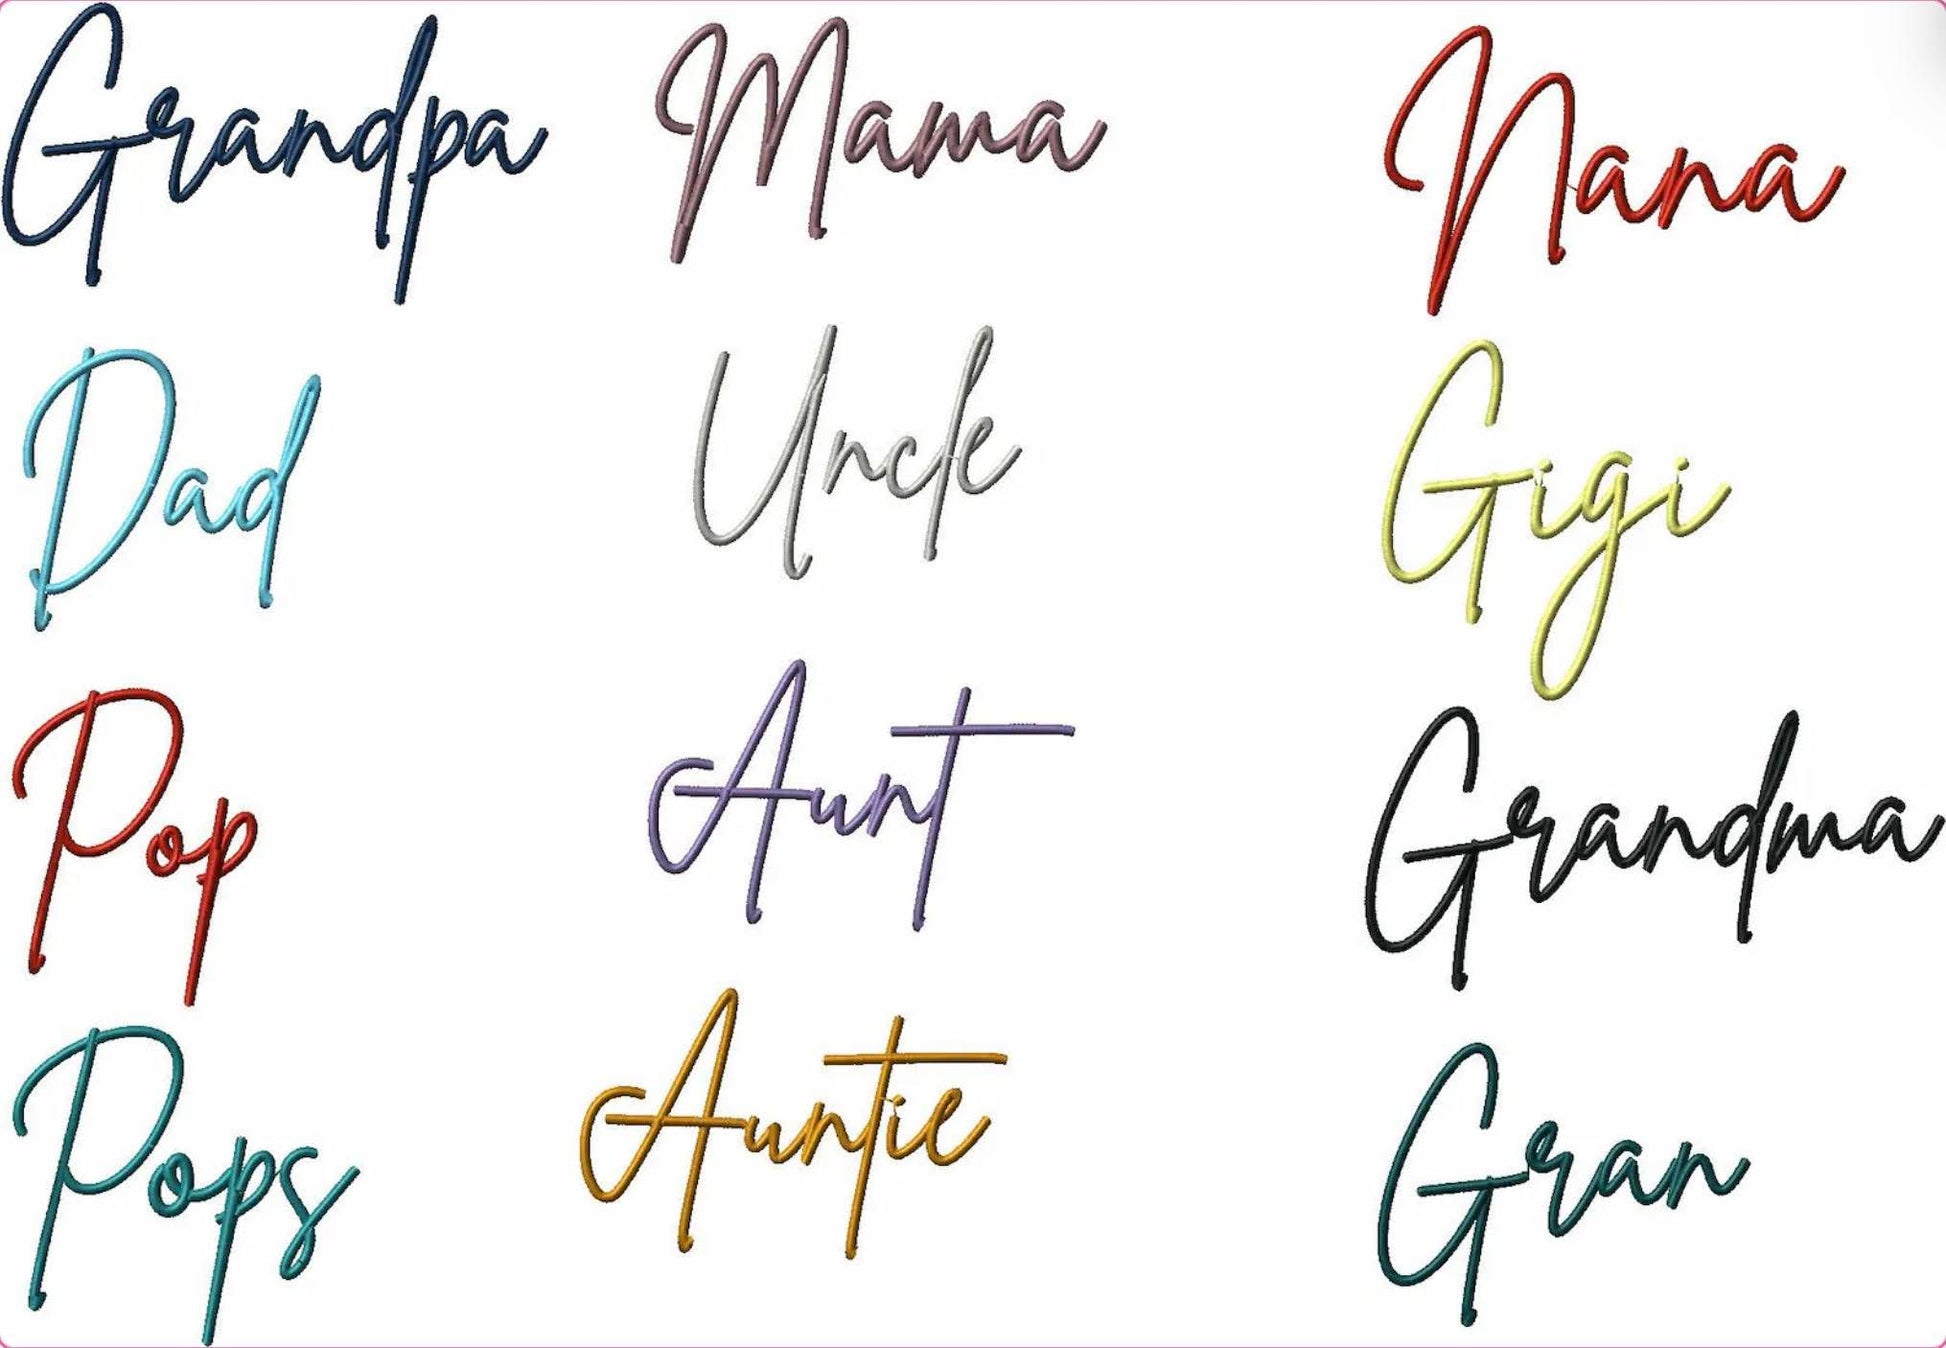 Grandpa
Mama
Nana
Dad
Uncle
Gigi
Pop
Aunt
Grandma
Pops
Auntie
Gran